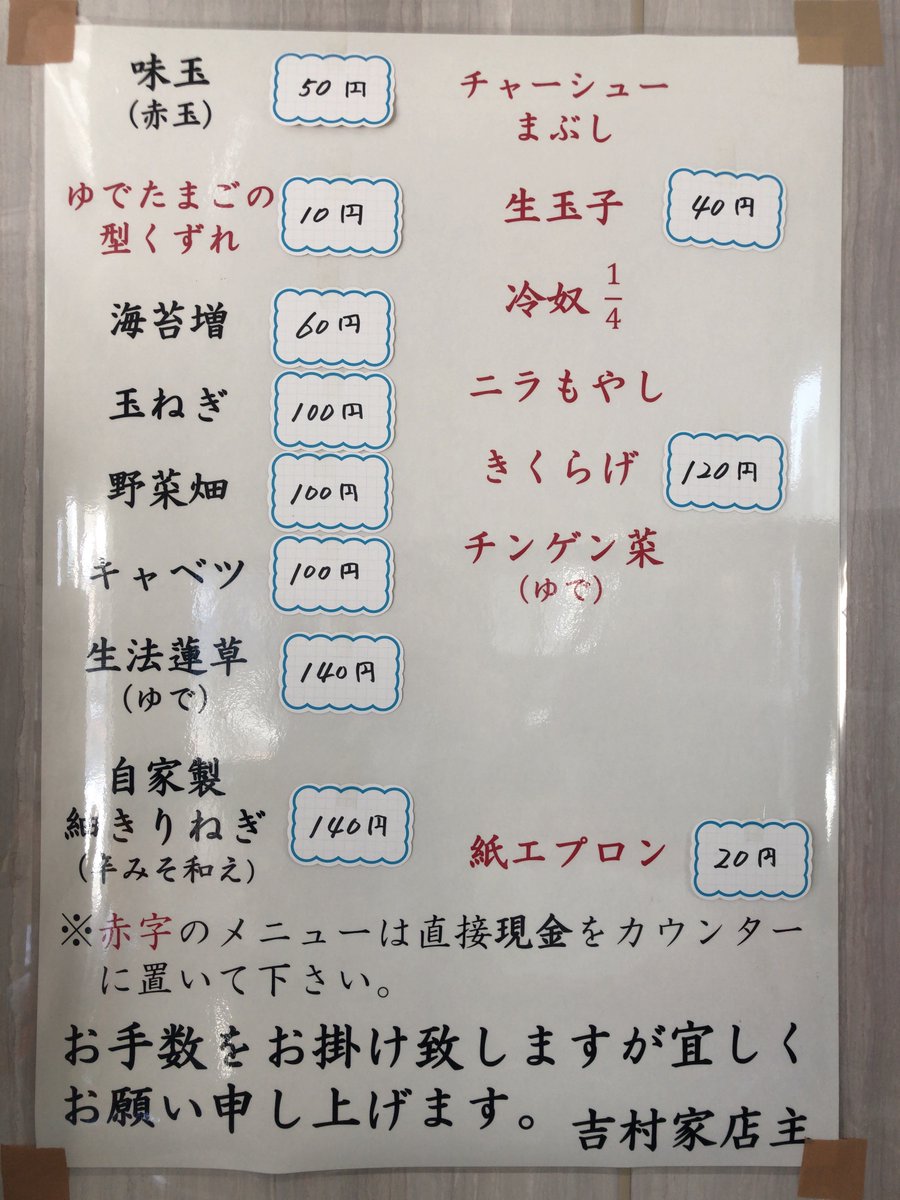 味玉 50円
(赤玉)
ゆでたまごの
型くずれ 10円
海苔増 60円
玉ねぎ 100円
野菜畑 100円
キャベツ 100円
生法蓮草 140円
(ゆで)
自家製
細きりねぎ 140円
(辛みそ和え)
チャーシュー
まぶし
生玉子 40円
冷奴 1/4
ニラもやし
きくらげ 120円
チンゲン菜
(ゆで)
紙エプロン 20円
※赤字のメニューは直接現金をカウンター
に置いて下さい。
お手数をお掛け致しますが宜しく
お願い申し上げます。
吉村家店主